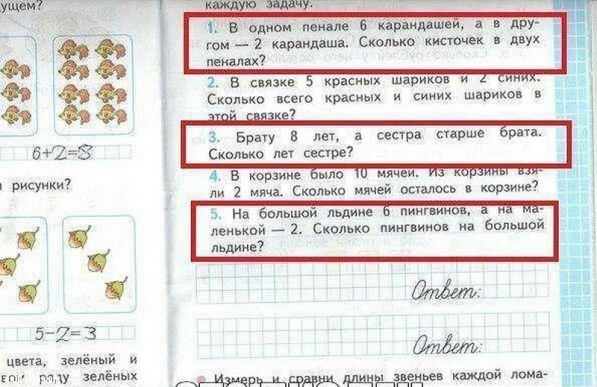 ущем?
6+2=8
рисунки?
5-2=3
цвета, зелёный и
ряду зелёных
каждую задачу.
1. В одном пенале 6 карандашей, а в дру-
гом — 2 карандаша. Сколько кисточек в двух
пеналах?
2. В связке 5 красных шариков и 2 синих.
Сколько всего красных и синих шариков в
этой связке?
3. Брату 8 лет, а сестра старше брата.
Сколько лет сестре?
4. В корзине было 10 мячей. Из корзины взя-
ли 2 мяча. Сколько мячей осталось в корзине?
5. На большой льдине 6 пингвинов, а на ма-
ленькой — 2. Сколько пингвинов на большой
льдине?
Ответ:
Ответ:
Измерь и сравни длины звеньев каждой лома-